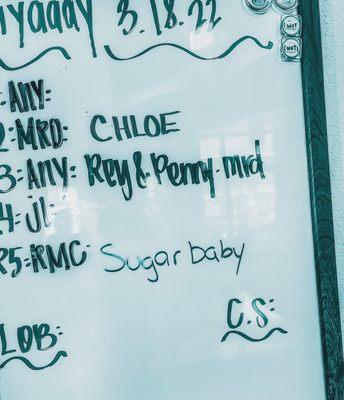 iyaaay 3.18.22
:Any:
2:MRD: CHLOE
3:ANY: Rey & Penny-mrd
4: JL:
R5:RMC Sugar baby
LOB: C.S: